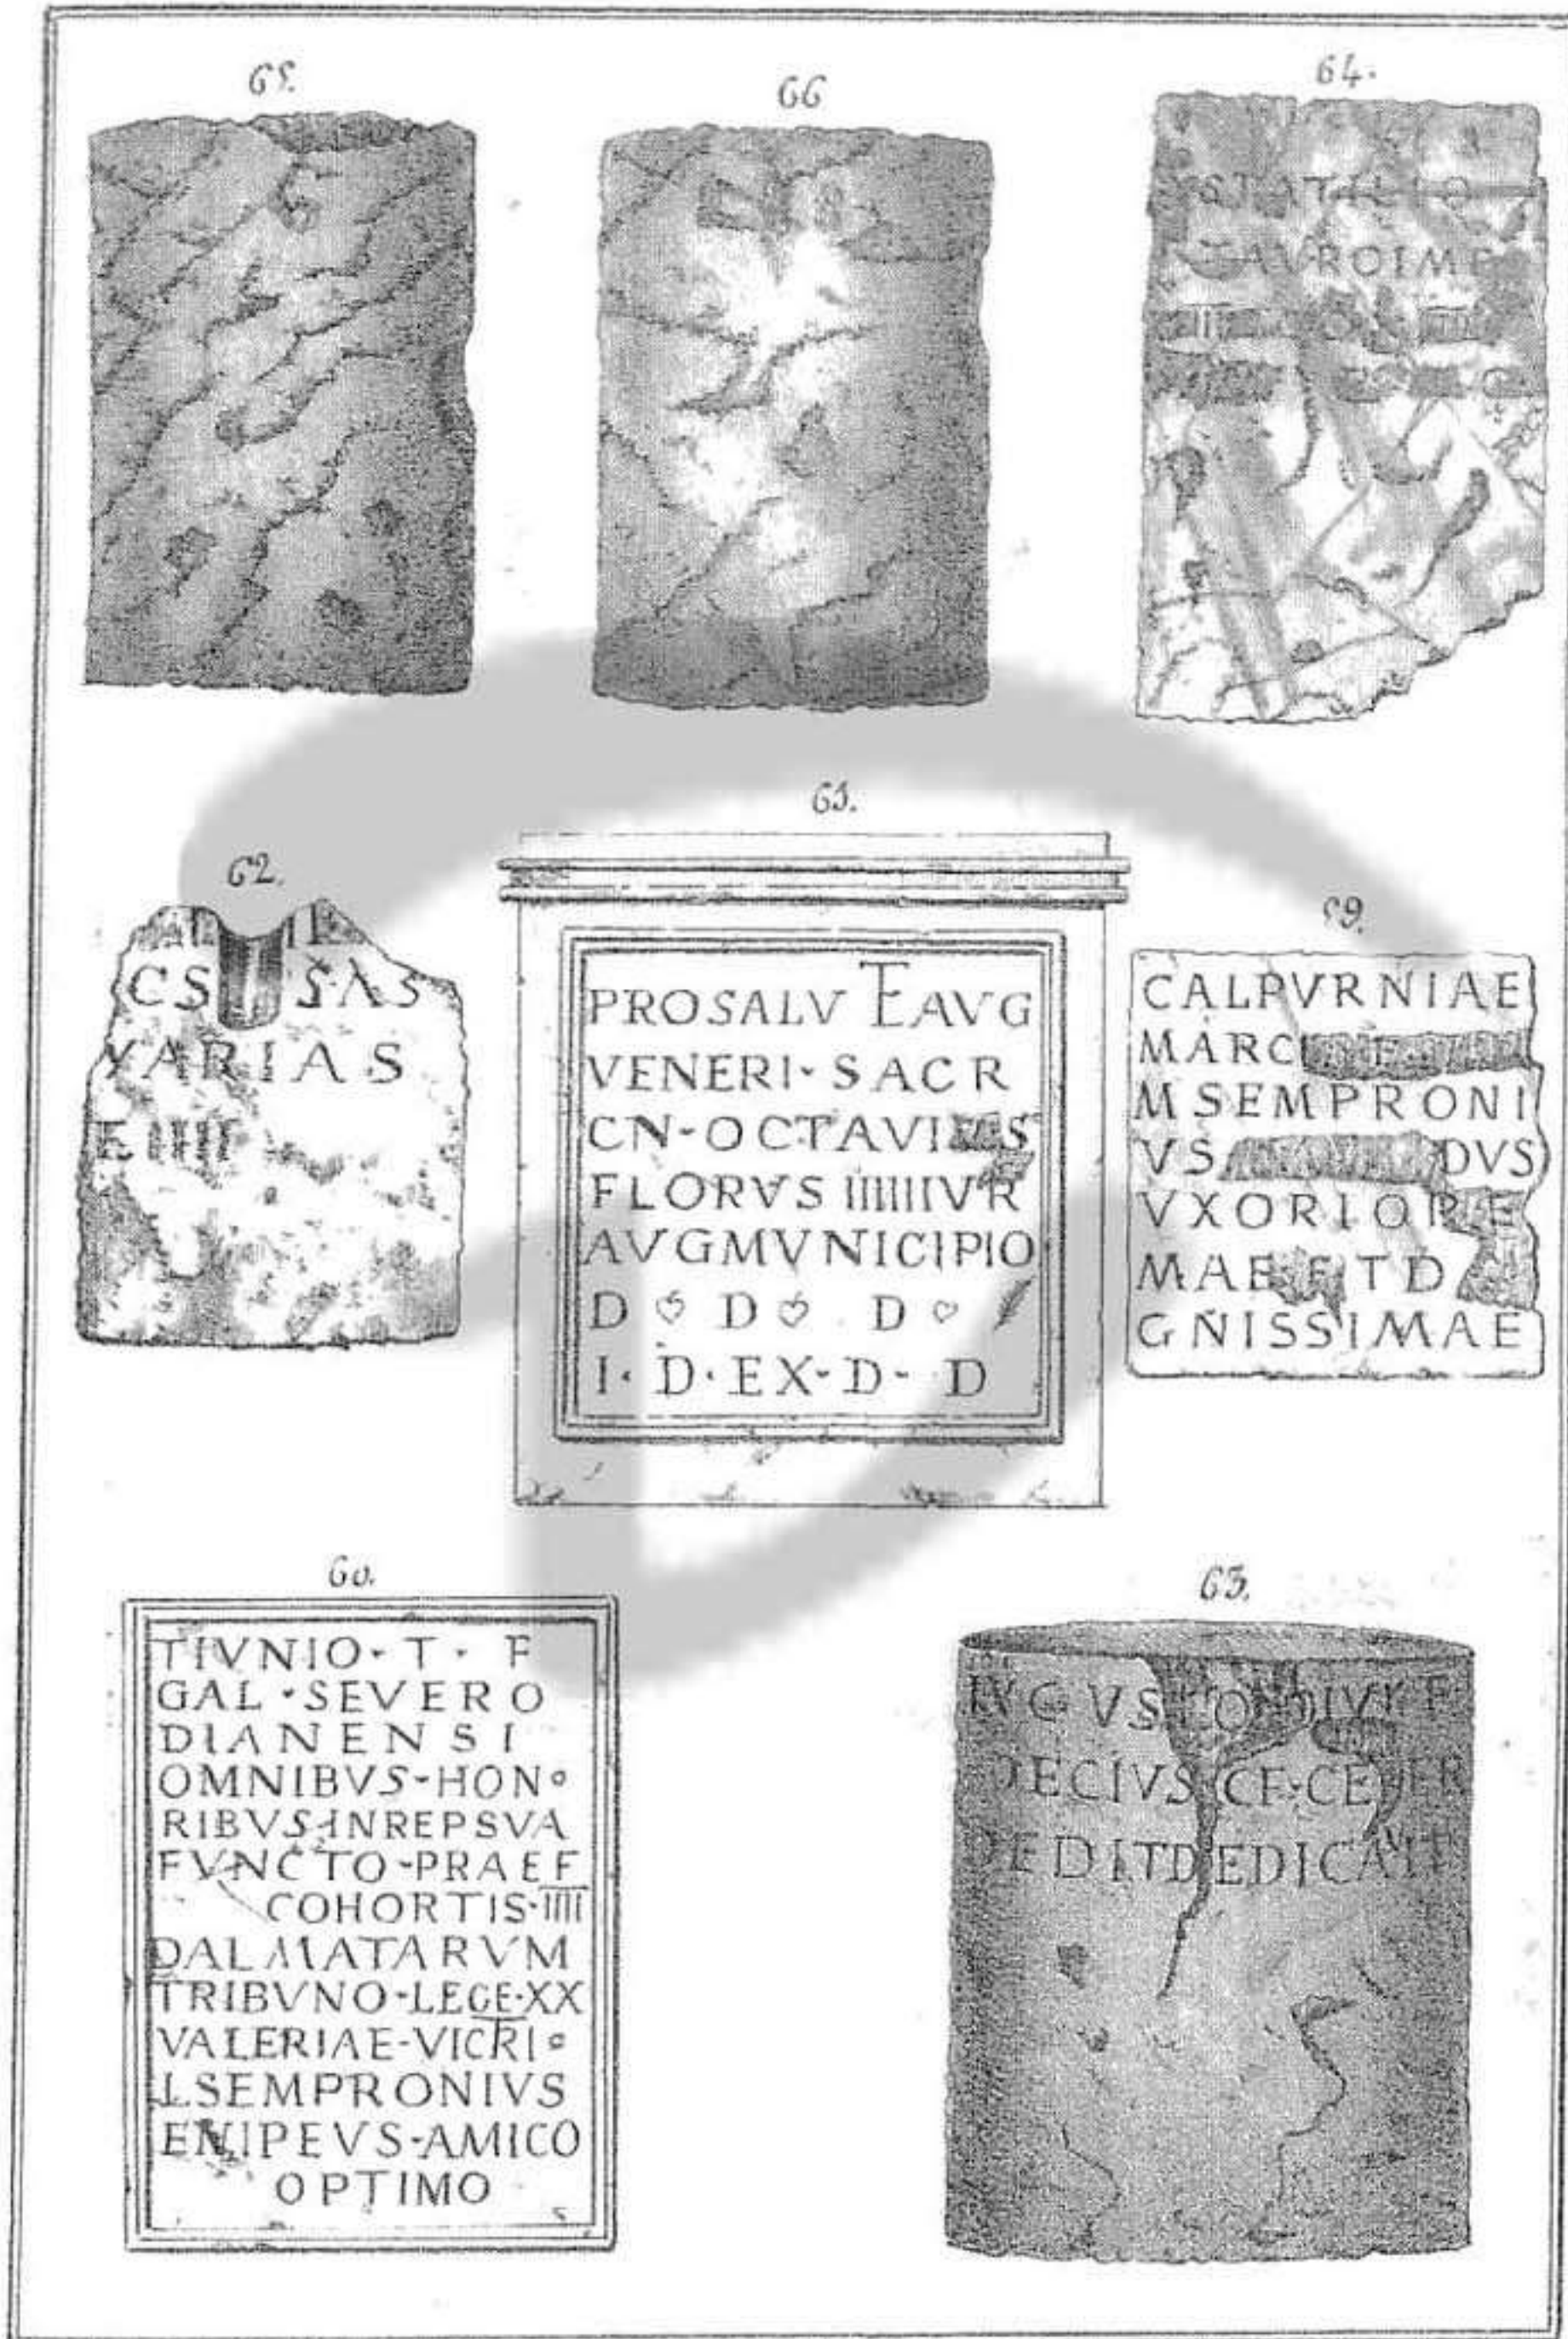 65.
66
64.
STATILIO
TAVROIMP
62.
CS SAS
VARIAS
61.
PROSALVTEAVG
VENERI-SACR
CN-OCTAVIVS
FLORVS IIIIIIVR
AVGMVNICIPIO
D D D
I· D· EX- D- D
59.
CALPVRNIAE
MARC
MSEMPRONI
VS DVS
VXORIOP E
MAE ET D
GNISSIMAE
60.
TIVNIO- T · F
GAL ·SEVERO
DIANENSI
OMNIBVS-HONO
RIBVS-INREPSVA
FVNCTO-PRAEF
COHORTIS·IIII
DALMATARVM
TRIBVNO-LEGE·XX
VALERIAE-VICTRIC
LSEMPRONIVS
ENIPEVS-AMICO
OPTIMO
63.
VGVSTO DIVI F
DECIVS CF·CELER
DEDITDEDICAVIT